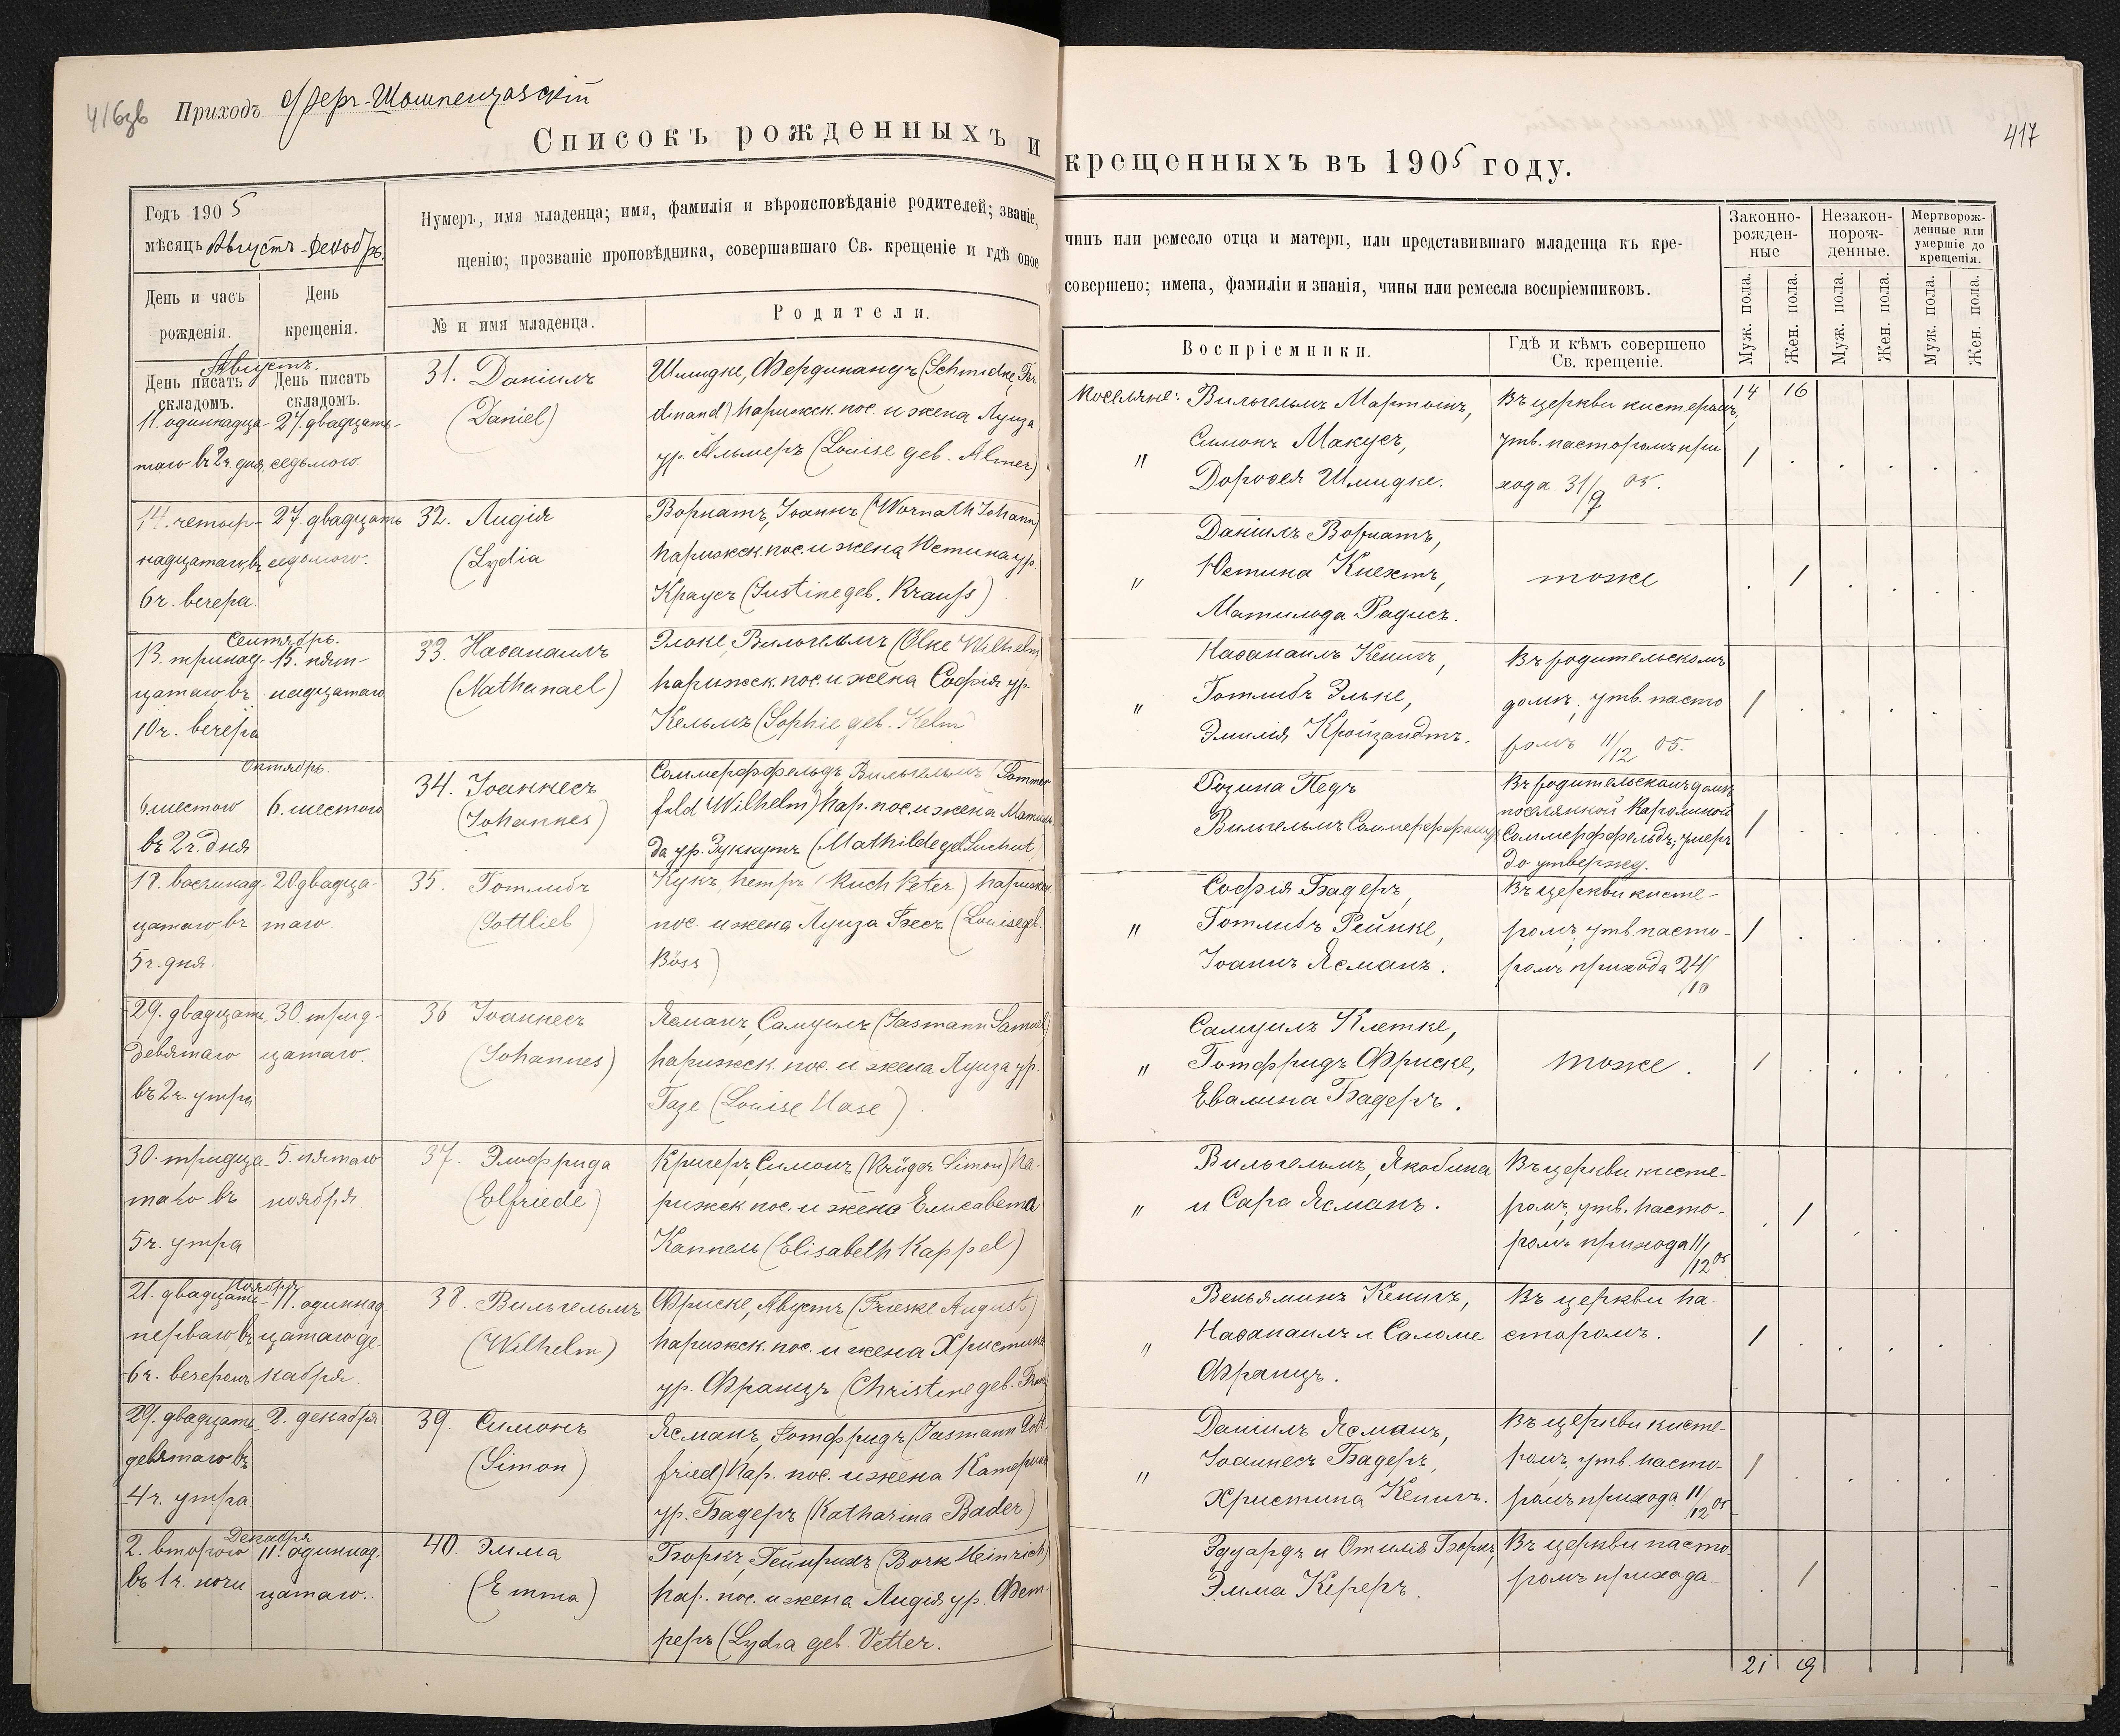 416об Приходъ Фершампенуазскій
417
Списокъ рожденныхъ и крещенныхъ въ 1905 году.
Годъ 1905
мѣсяцъ Августъ-Декабрь.
День и часъ рожденія.
День крещенія.
Нумеръ, имя младенца; имя, фамилія и вѣроисповѣданіе родителей; званіе, чинъ или ремесло отца и матери, или представившаго младенца къ кре-
щенію; прозваніе проповѣдника, совершавшаго Св. крещеніе и гдѣ оное совершено; имена, фамиліи и знанія, чины или ремесла воспріемниковъ.
№ и имя младенца.
Родители.
Воспріемники.
Гдѣ и кѣмъ совершено
Св. крещеніе.
Законно-
рожден-
ные
Незакон-
норож-
денные.
Мертворож-
денные или
умершіе до
крещенія.
Муж. пола.
Жен. пола.
Муж. пола.
Жен. пола.
Муж. пола.
Жен. пола.
Августъ.
День писать складомъ.
День писать складомъ.
14 16
11. одиннадца-
таго въ 2 ч. дня
27. двадцать-
седьмого.
31. Даніилъ
(Daniel)
Шмидке, Фердинандъ (Schmidke, Fer
dinand) парижск. пос. и жена Луиза
ур. Альмеръ (Louise geb. Almer)
Поселяне: Вильгельмъ Мартошъ,
" Симонъ Макусъ,
Доротея Шмидке.
Въ церкви кистеромъ,
утв. пасторомъ при
хода 31/9 05.
1
14. четыр-
надцатаго, въ
6 ч. вечера.
27. двадцать
седьмого.
32. Лидія
(Lydia
Ворнатъ, Іоаннъ (Wornath Johann)
парижск. пос. и жена Юстина ур.
Краусъ (Justine geb. Krauß)
Даніилъ Ворнатъ,
" Юстина Кнехтъ,
Матильда Радисъ.
тоже
1
Сентябрь.
13. тринад-
цатаго въ
10 ч. вечера
15. пят-
надцатаго
33. Наѳанаилъ
(Nathanael)
Эльке, Вильгельмъ (Ölke Wilhelm
парижск. пос. и жена Софія ур.
Кельмъ (Sophie geb. Kelm)
Наѳанаилъ Кенигъ,
" Готлибъ Эльке,
Эмилія Кройзандтъ.
Въ родительскомъ
домѣ, утв. пасто
ромъ 11/12 05.
1
Октябрь.
6. шестого
въ 2 ч. дня
6. шестого
34. Іоаннесъ
(Johannes)
Соммерфельдъ Вильгельмъ (Sommer
feld Wilhelm) пар. пос. и жена Матиль-
да ур. Зуккутъ (Mathilde geb. Suchut)
Розина Педъ
Вильгельмъ Соммерфельдъ
Въ родительскомъ домѣ
поселянкой Каролиной
Соммерфельдъ, умеръ
до утвержд.
1
18. восемнад-
цатаго въ
5 ч. дня.
20 двадца-
таго.
35. Готлибъ
(Gottlieb)
Кухъ, Петръ (Kuch Peter) парижск
пос. и жена Луиза Бесъ (Louise geb.
Böss)
Софія Бадеръ,
" Готлибъ Рейнке,
Іоаннъ Ясманъ.
Въ церкви кисте-
ромъ, утв. пасто-
ромъ прихода 24/10
1
29. двадцать
девятаго
въ 2 ч. утра
30. трид-
цатаго.
36 Іоаннесъ
(Johannes)
Ясманъ, Самуилъ (Jasmann Samuel)
парижск. пос. и жена Луиза ур.
Газе (Louise Hase)
Самуилъ Клетке,
" Готфридъ Фриске,
Евалина Бадеръ.
тоже.
1
30. тридца-
таго въ
5 ч. утра
5. пятаго
ноября
37. Эльфрида
(Elfriede)
Кригеръ, Симонъ (Krüger Simon) Па-
рижск пос. и жена Елисавета
Каппель (Elisabeth Kappel)
Вильгельмъ, Якобина
" и Сара Ясманъ.
Въ церкви кисте-
ромъ, утв. пасто-
ромъ прихода 11/12 05
1
Ноябрь.
21. двадцать-
перваго, въ
6 ч. вечеромъ
11. одиннад
цатаго де-
кабря.
38. Вильгельмъ
(Wilhelm)
Фриске, Августъ (Frieske August)
парижск. пос. и жена Христина
ур. Францъ (Christine geb. Fran
Веньяминъ Кенигъ,
" Наѳанаилъ и Саломе
Францъ.
Въ церкви па-
сторомъ.
1
29. двадцать
девятаго въ
4 ч. утра.
2. декабря
39. Симонъ
(Simon)
Ясманъ, Готфридъ (Jasmann Gott-
fried) пар. пос. и жена Катерина
ур. Бадеръ (Katharina Bader)
Даніилъ Ясманъ,
" Іоаннесъ Бадеръ,
Христина Кенигъ.
Въ церкви кисте-
ромъ, утв. пасто-
ромъ прихода 11/12 05
1
Декабря
2. второго
въ 1 ч. ночи
11. одиннад.
цатаго.
40. Эмма
(Emma)
Боркъ, Гейнрихъ (Bork Heinrich)
пар. пос. и жена Лидія ур. Фет-
теръ (Lydia geb. Vetter.
Эдуардъ и Отилія Боркъ,
Эмма Кереръ.
Въ церкви пасто
ромъ прихода
1
21 19